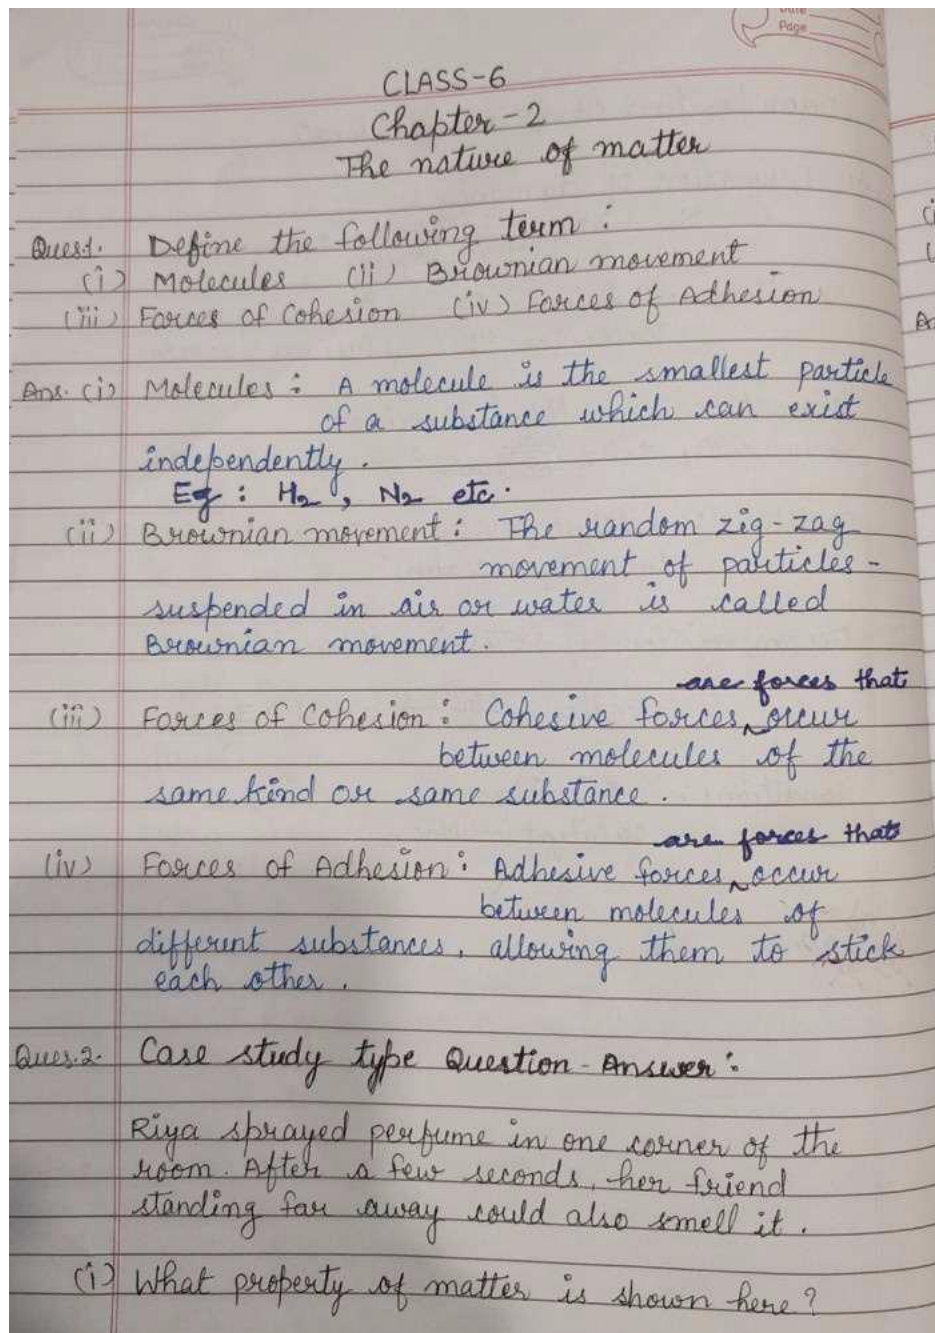 Date
Page
CLASS-6
Chapter-2
The nature of matter
Ques1. Define the following term :
(i) Molecules (ii) Brownian movement
(iii) Forces of Cohesion (iv) Forces of Adhesion
Ans. (i) Molecules : A molecule is the smallest particle
of a substance which can exist
independently.
Eg : H₂, N₂ etc.
(ii) Brownian movement : The random zig-zag
movement of particles-
suspended in air or water is called
Brownian movement.
are forces that
(iii) Forces of Cohesion : Cohesive forces ^ occur
between molecules of the
same kind or same substance.
are forces that
(iv) Forces of Adhesion : Adhesive forces ^ occur
between molecules of
different substances, allowing them to stick
each other.
Ques.2. Case study type Question-Answer :
Riya sprayed perfume in one corner of the
room. After a few seconds, her friend
standing far away could also smell it.
(i) What property of matter is shown here?